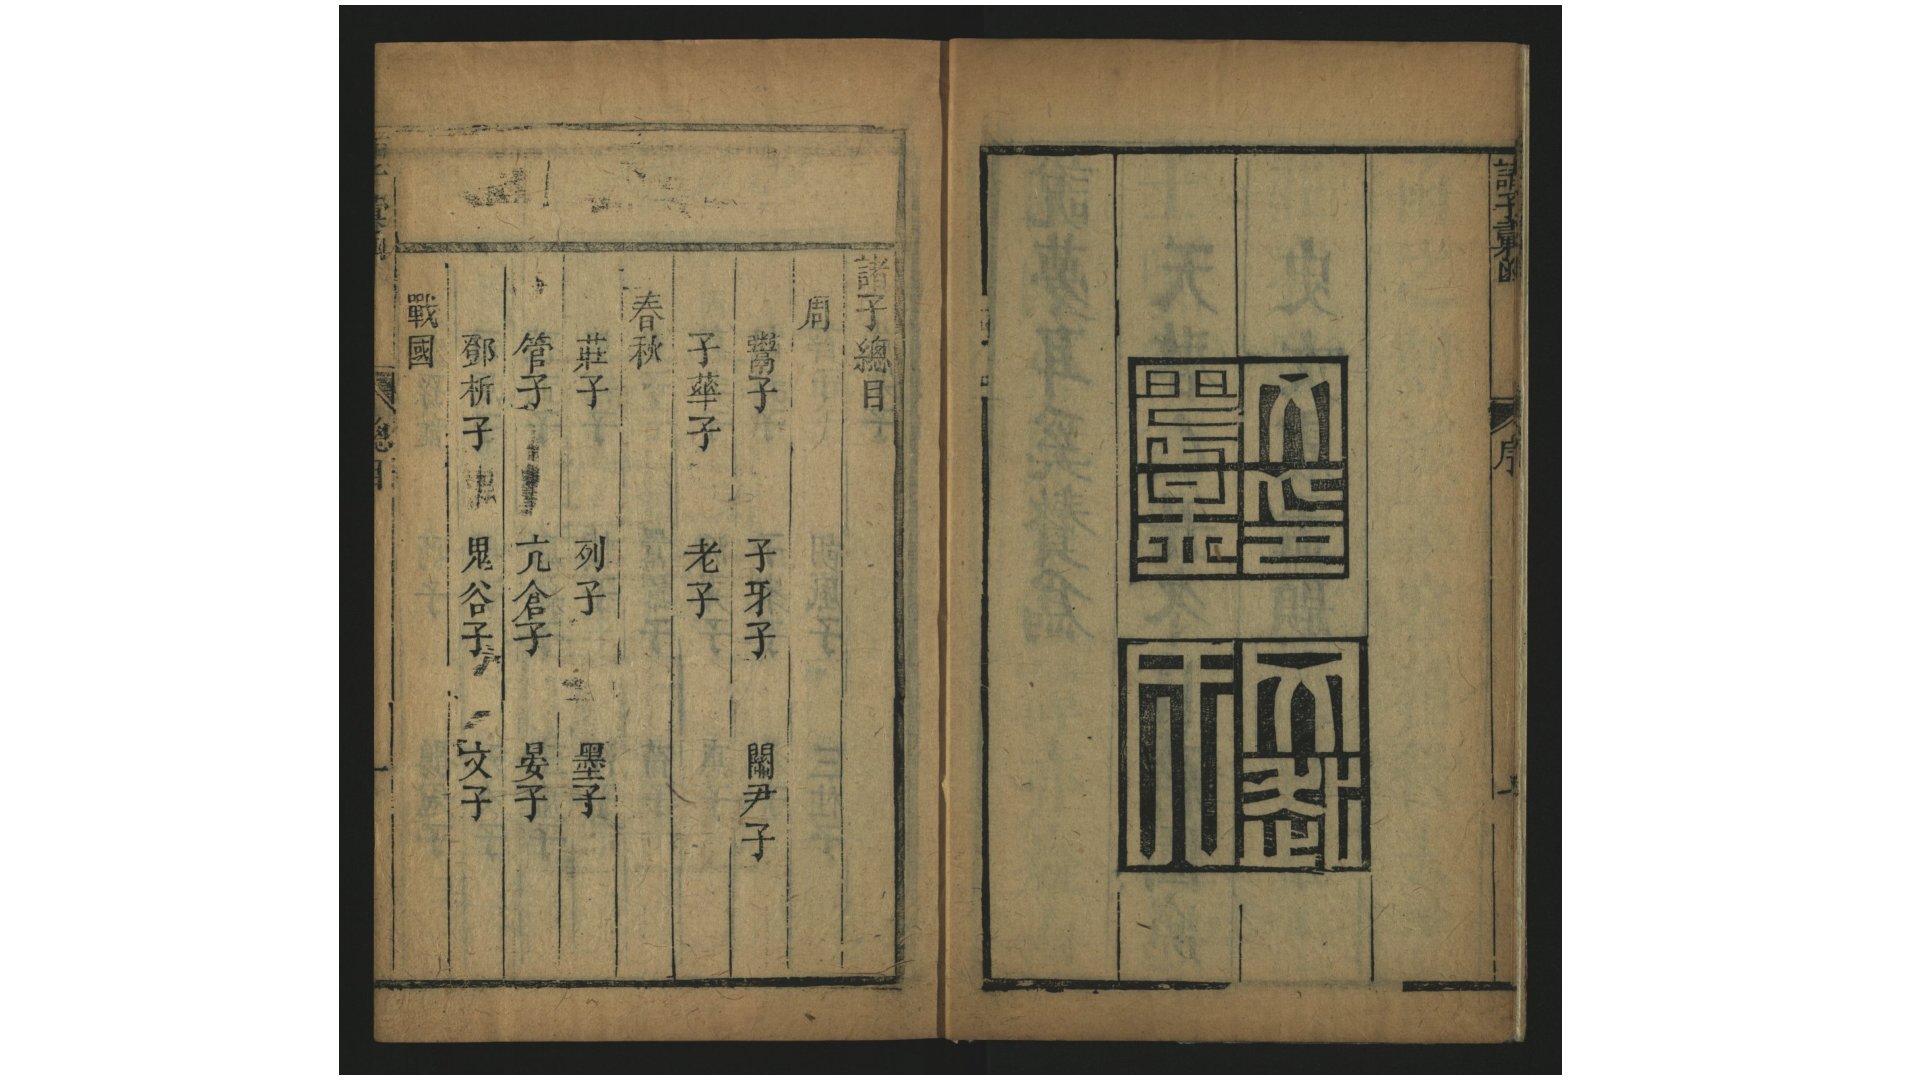 諸子彙函
序
諸子總目
周
鬻子 子牙子 關尹子
子華子 老子
春秋
莊子 列子 墨子
管子 亢倉子 晏子
鄧析子 鬼谷子 文子
戰國
總目 一